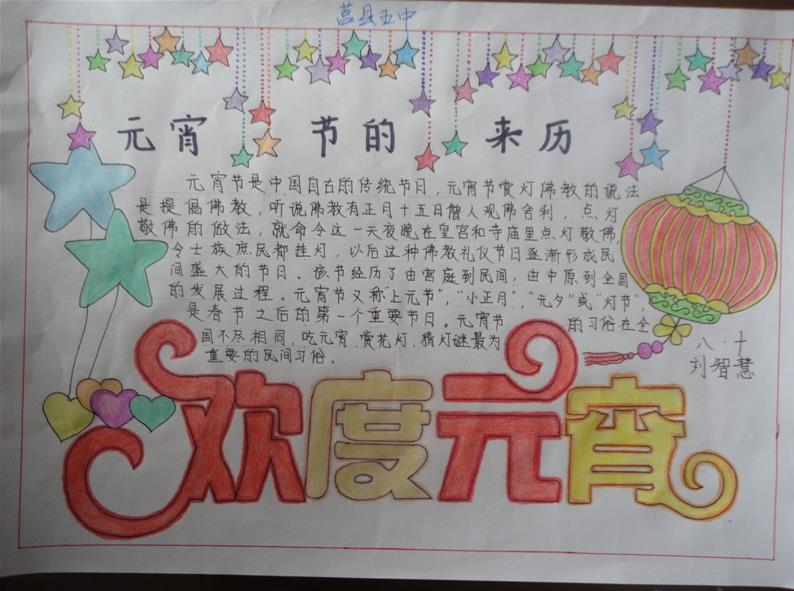 莒县五中
元宵节的来历
元宵节是中国自古的传统节日，元宵节赏灯佛教的说法
是提倡佛教，听说佛教有正月十五日僧人观佛舍利，点灯
敬佛的做法，就命令这一天夜晚在皇宫和寺庙里点灯敬佛，
令士族庶民都挂灯，以后这种佛教礼仪节日逐渐形成民
间盛大的节日。该节经历了由宫庭到民间，由中原到全国
的发展过程。元宵节又称"上元节"，"小正月"，"元夕"或"灯节"，
是春节之后的第一个重要节日。元宵节的习俗在全
国不尽相同，吃元宵、赏花灯、猜灯谜最为
重要的民间习俗。
八·十
刘智慧
欢度元宵